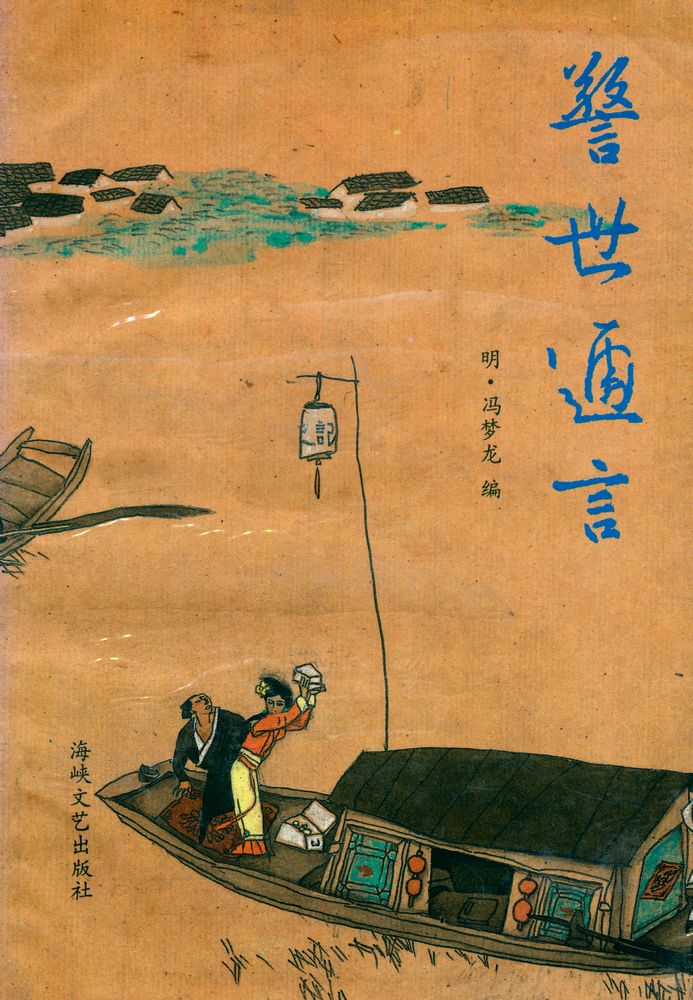 警世通言
明·冯梦龙 编
記
海峡文艺出版社